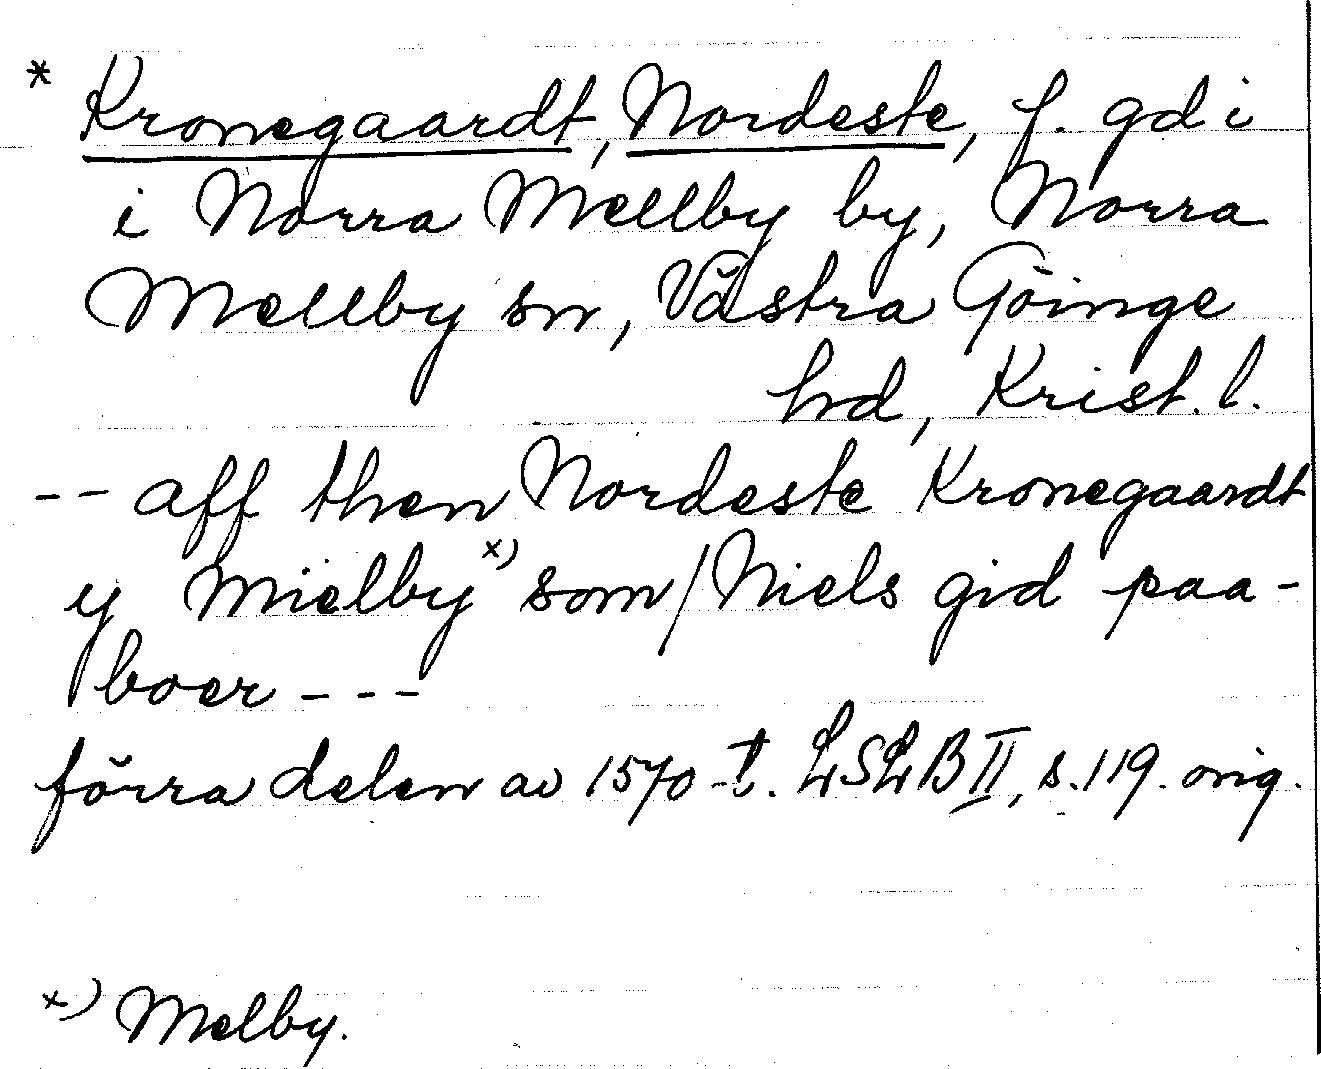 * Kronegaardt, Nordeste, f. gd i
i Norra Mellby by, Norra
Mellby sn, Västra Göinge
hd, Krist. l.
-- aff then Nordeste Kronegaardt
y Mielby x) som / Niels gid paa-
boer ---
förra delen av 1570-t. LSLB II, s. 119. orig.
x) Melby.